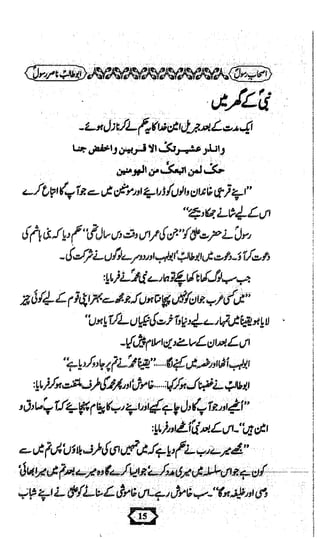 اصحاب رسولؐ
ابو طالبؑ ناصر رسولؐ
نبیؐ کے گھر میں
ایک مدت کے بعد جبریل امین خدا کا یہ حکم لے کر نازل ہوئے۔
وانذر عشیرتک الا قربین واخفض جنا
حک لمن اتبعک من المومنین
”اپنے قریبی خاندان والوں کو ڈرایئے اور مومنین میں سے جو آپ کا اتباع کرے
اس کے لیے شانے جھکا دیجئے“
رسولؐ نے حضرت علیؑ کو ”جن کی عمر اس وقت دس سال تھی“ حکم دیا کہ بنی ہاشم کی
دعوت کر آؤ۔ دعوت میں ابو طالبؑ، ابولہب اور دوسرے لوگوں نے شرکت کی۔
جب سب لوگ کھانا کھا چکے تو ہمارے نبی محمدؐ نے فرمایا:
”میں کسی عرب جوان کو نہیں پہچانتا ہوں کہ جو مجھ سے بہتر اپنی قوم کے لیے کوئی چیز
لایا ہو یقیناً میں تمہارے لیے دنیا و آخرت کی نیکیاں لے کر آیا ہوں“
اس کے بعد ان کے سامنے دین اسلام پیش کیا۔
ابولہب اٹھا اور غصہ میں کہنے لگا.... ”یقیناً محمدؐ نے تم پر جادو کر دیا ہے“
ابو طالبؑ نے غضبناک ہو کر کہا.... خاموش! اور پھر محمدؐ کی طرف ملتفت ہو کر فرمایا:
”اٹھیے اور جو آپ کا دل چاہے کہیے اور اپنے رب کا پیغام پہنچایئے کہ آپ صادق و
امین ہیں“۔ اس کے بعد نبیؐ اٹھے اور فرمایا:
”مجھے میرے رب نے حکم دیا ہے کہ میں تمہیں اسی کی طرف بلاؤں! پس تم میں سے
کون ہے جو اس سلسلہ میں میری مدد کرے؟ جو ایسا کرے گا وہ میرے بعد تم میں میرا بھائی“
وصی اور خلیفہ ہو گا“۔ سب خاموش رہے۔ اس خاموشی کے سناٹے کو علیؑ نے اپنے شباب
15